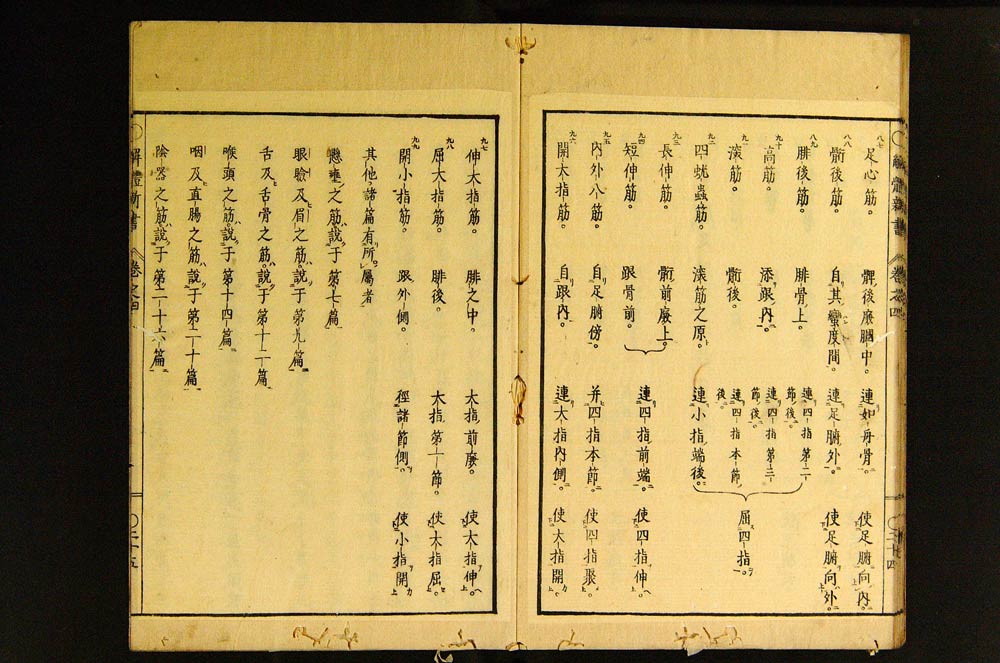 解體新書 卷之四 〇二十四
八七 足心筋。 髀後廉膕中。 連如舟骨。 使足腑向內。
八八 䯒後筋。 自其蠻度間。 連足腑外。 使足腑向外。
八九 腓後筋。 腓骨上。 連四指第二節後。
九十 高筋。 添跟內。 連四指第三節後。
九一 滾筋。 䯒後。 連四指本節後。
九二 四蚘蟲筋。 滾筋之原。 連小指端後。
屈四指。
九三 長伸筋。 䯒前廉上。
九四 短伸筋。 跟骨前。
連四指前端。 使四指伸。
九五 內外八筋。 自足腑傍。 并四指本節。 使四指聚。
九六 開大指筋。 自跟內。 連大指內側。 使大指開。
九七 伸大指筋。 腓之中。 大指前廉。 使大指伸。
九八 屈大指筋。 腓後。 大指第一節。 使大指屈。
九九 開小指筋。 跟外側。 徑諸節側。 使小指開。
其他諸篇有所屬者
懸壅之筋說于第七篇
眼瞼及眉之筋說于第九篇
舌及舌骨之筋說于第十二篇
喉頭之筋說于第十四篇
咽及直腸之筋說于第二十篇
陰器之筋說于第二十六篇
解體新書 卷之四 〇二十五